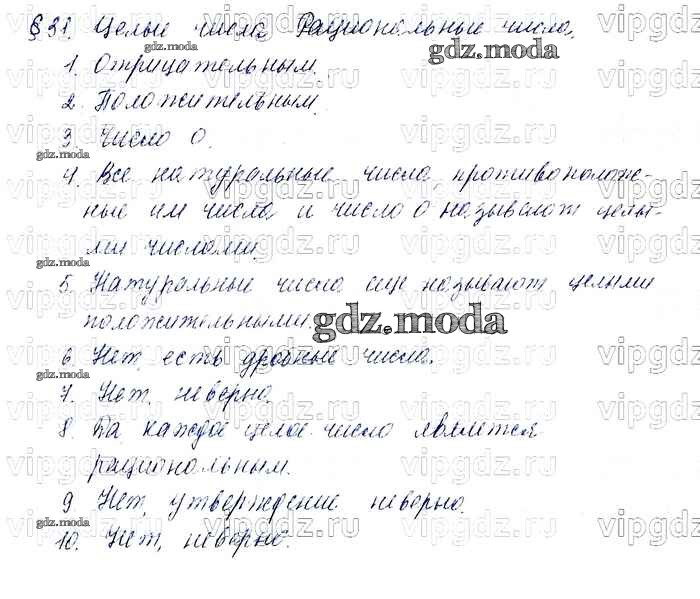 § 31. Целые числа. Рациональные числа.
1. Отрицательным.
2. Положительным.
3 Число 0.
4. Все натуральные числа, противополож-
ные им числа и число 0 называют целы-
ми числами.
5. Натуральные числа еще называют целыми
положительными.
6. Нет, есть дробные числа.
7. Нет, неверно.
8. Да каждое целое число является
рациональным.
9 Нет, утверждение неверно.
10. Нет, неверно.
gdz.moda
vipgdz.ru